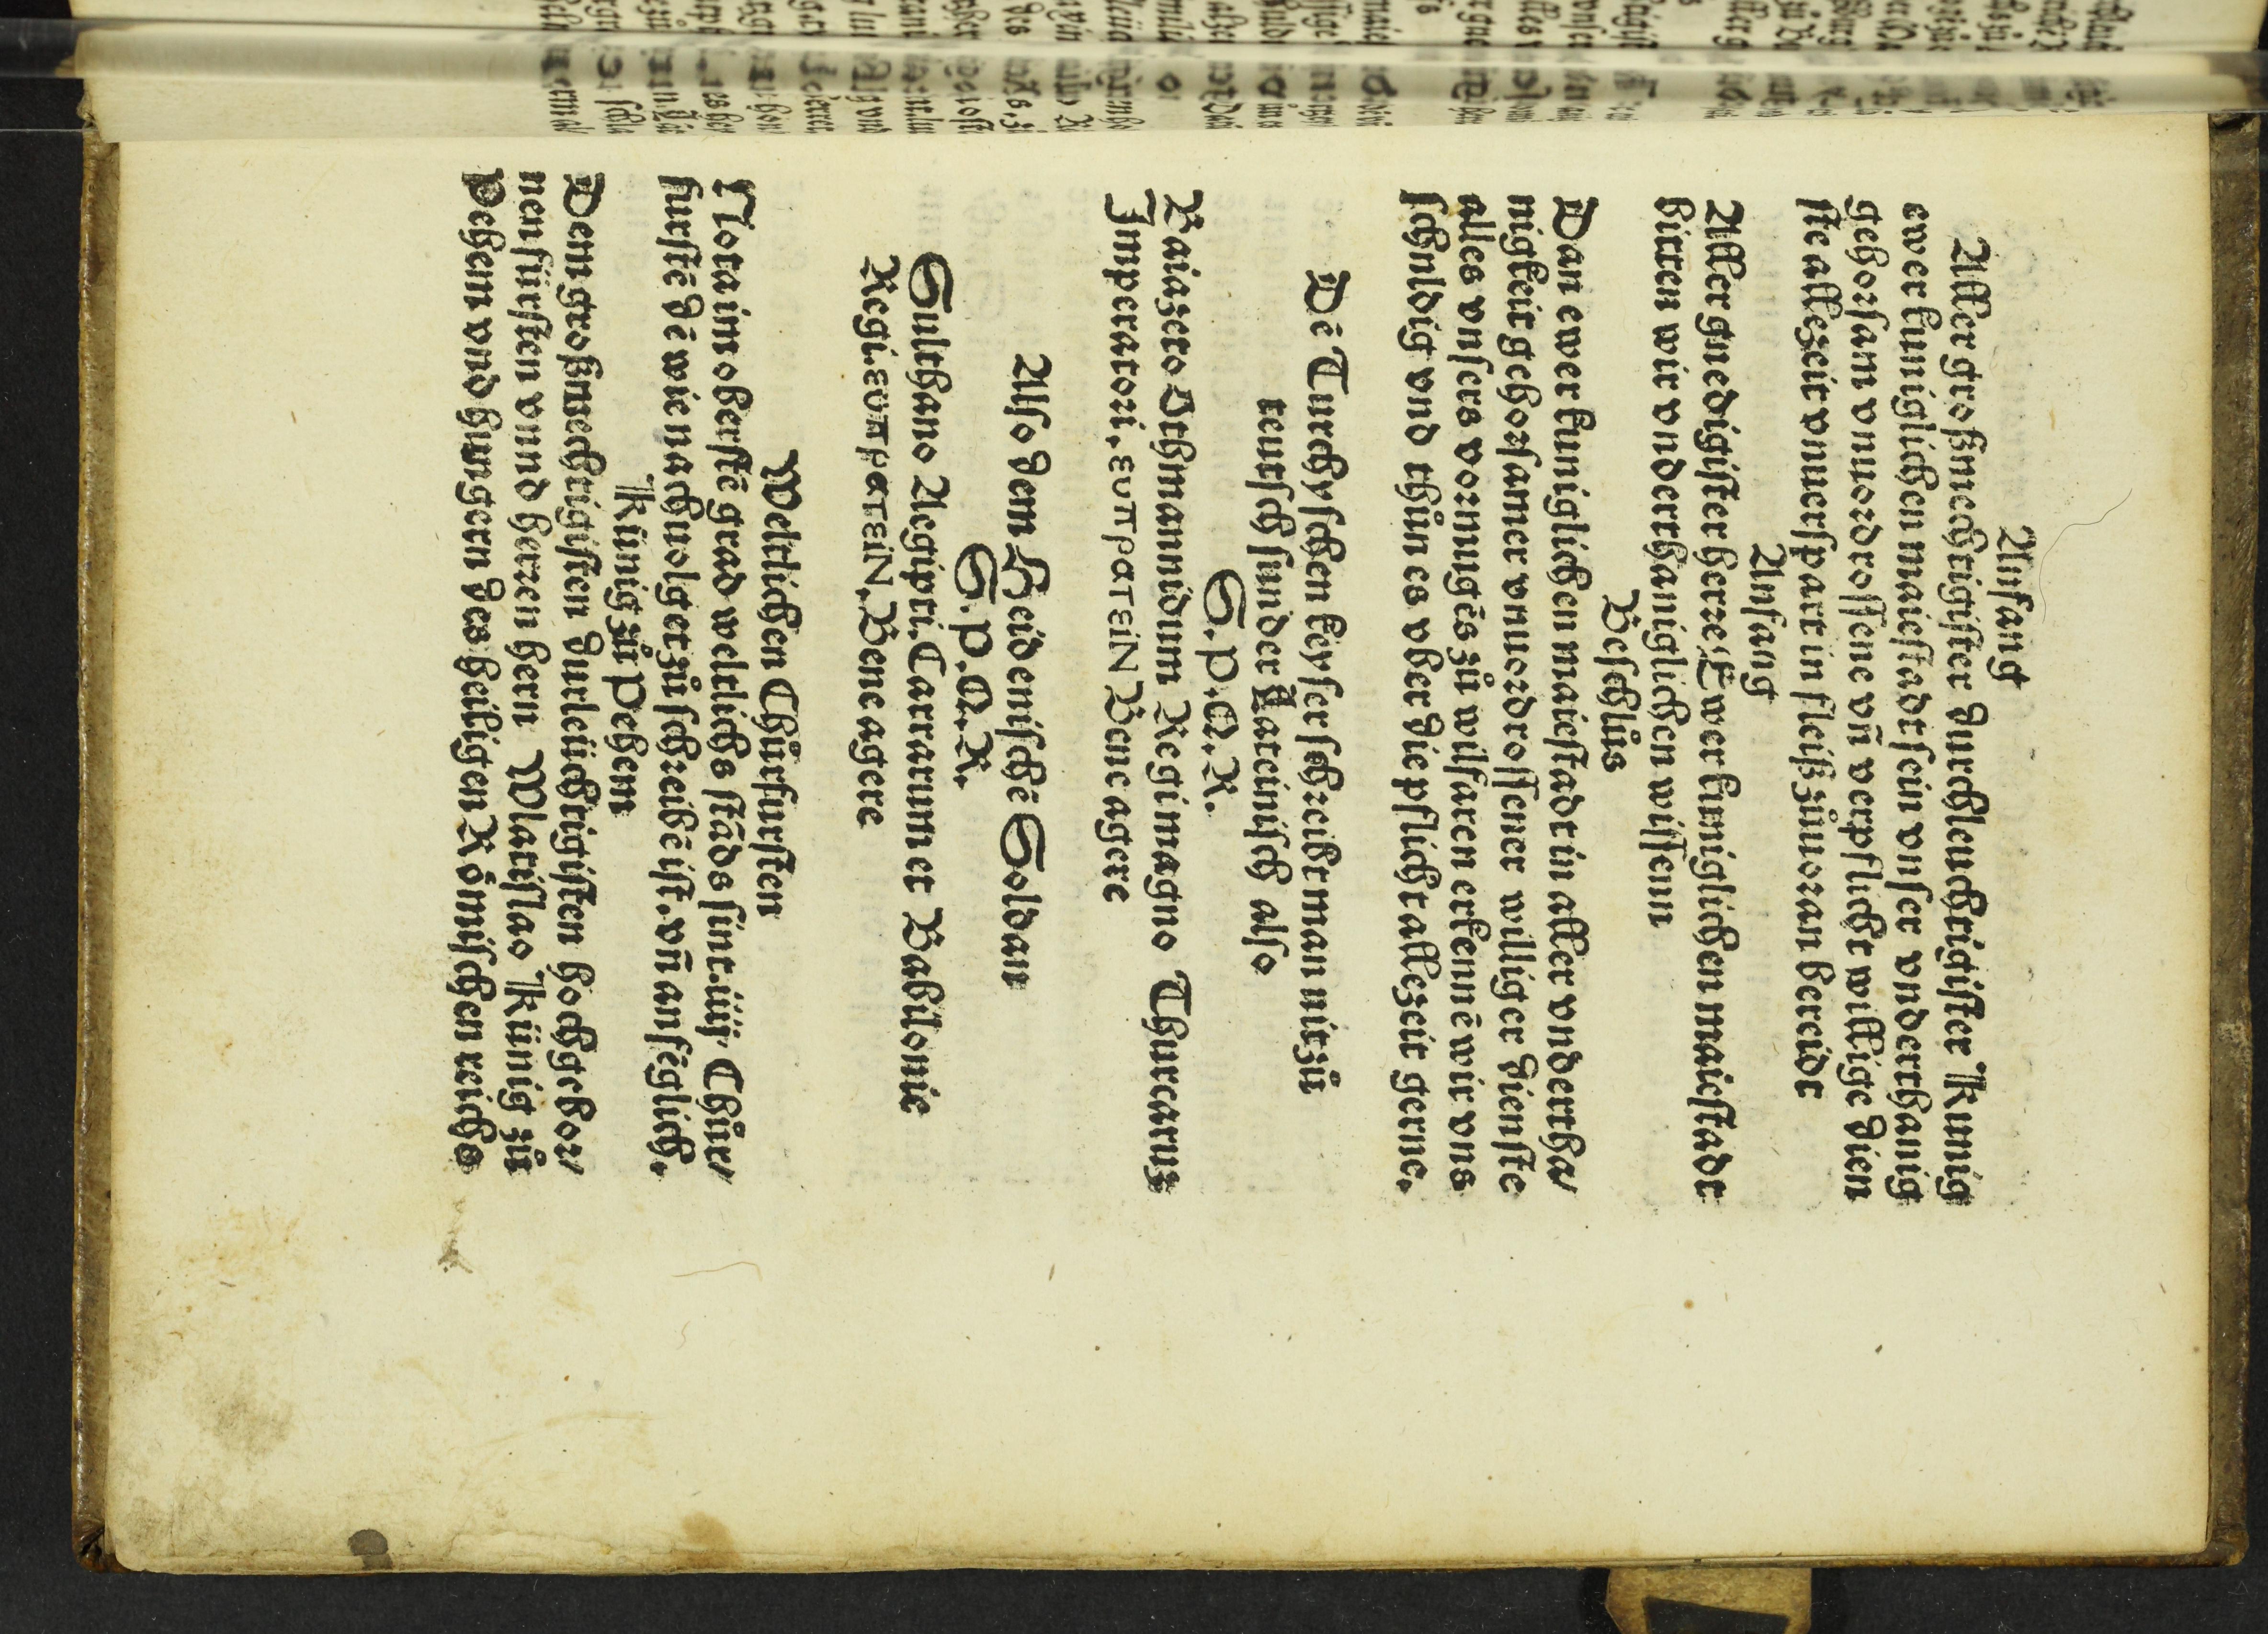 Anfang
Aller großmechtigister durchleuchtigister Kunig
ewer kuniglichen maiestadt sein vnser vnderthanig
gehorsam vnuordrossene vñ verpflicht willige dien
ste allezeit vnuerspart in fleiß zůuoran bereidt
Anfang
Aller gnedigister herre/Ewer kuniglichen maiestadt
bitten wir vnderthaniglichen wissenn
Beschlůs
Dan ewer kuniglichen maiestadt in aller vndertha/
nigkeit gehorsamer vnuordrossener williger dienste
alles vnsers vormugēs zů wilfaren erkennē wir vns
schuldig vnd thůn es vber die pflicht allezeit gerne.
Dē Turchyschen keyser schreibt man nit zů
teutsch sunder Lateinisch also
S.P.Q.R.
Baiazero Othmannidum Regi magno Thurcarum
Imperatori.ευπρατειν Bene agere
Also dem Heidenischē Soldan
S.P.Q.R.
Sulthano Aegipti.Tartarum et Babilonie
Regi.ευπρατειν.Bene agere
Weltlichen Chůrfursten
Nota im oberstē grad weltlichs stāds sint.iiij.Chůr/
furstē dē wie nachuolget zů schreibē ist.vñ anfēglich.
Künig zů Pehem
Dem großmechtigisten durleüchtigisten hochgebor/
nen fürsten vnnd herren hern Wlatislao Künig zů
Pehem vnnd hungern des heiligen Römischen reichs